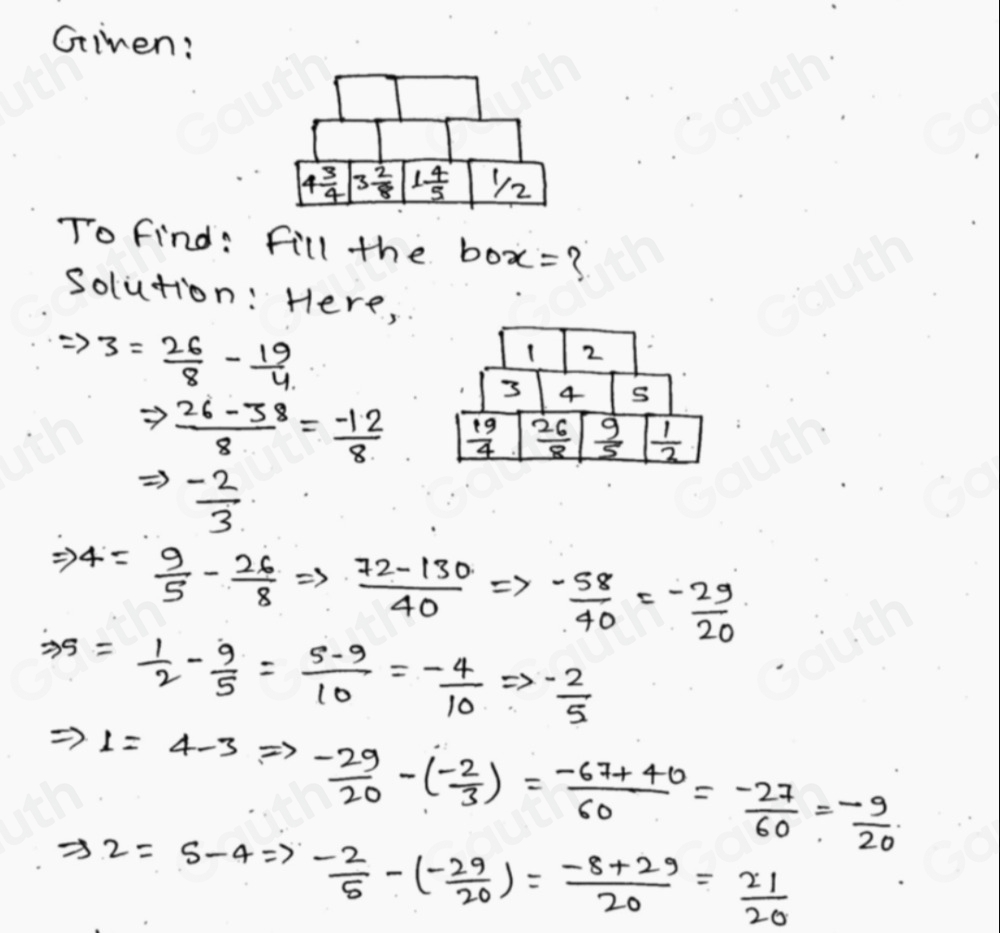 Given:
4 3/4 3 2/8 1 4/5 1/2
To find: Fill the box=?
Solution: Here,
=> 3 = 26/8 - 19/4
=> 26-38/8 = -12/8
=> -2/3
1 2
3 4 5
19/4 26/8 9/5 1/2
=> 4 = 9/5 - 26/8 => 72-130/40 => -58/40 = -29/20
=> 5 = 1/2 - 9/5 = 5-9/10 = -4/10 => -2/5
=> 1 = 4-3 => -29/20 - (-2/3) = -67+40/60 = -27/60 = -9/20
=> 2 = 5-4 => -2/5 - (-29/20) = -8+29/20 = 21/20
Gauth